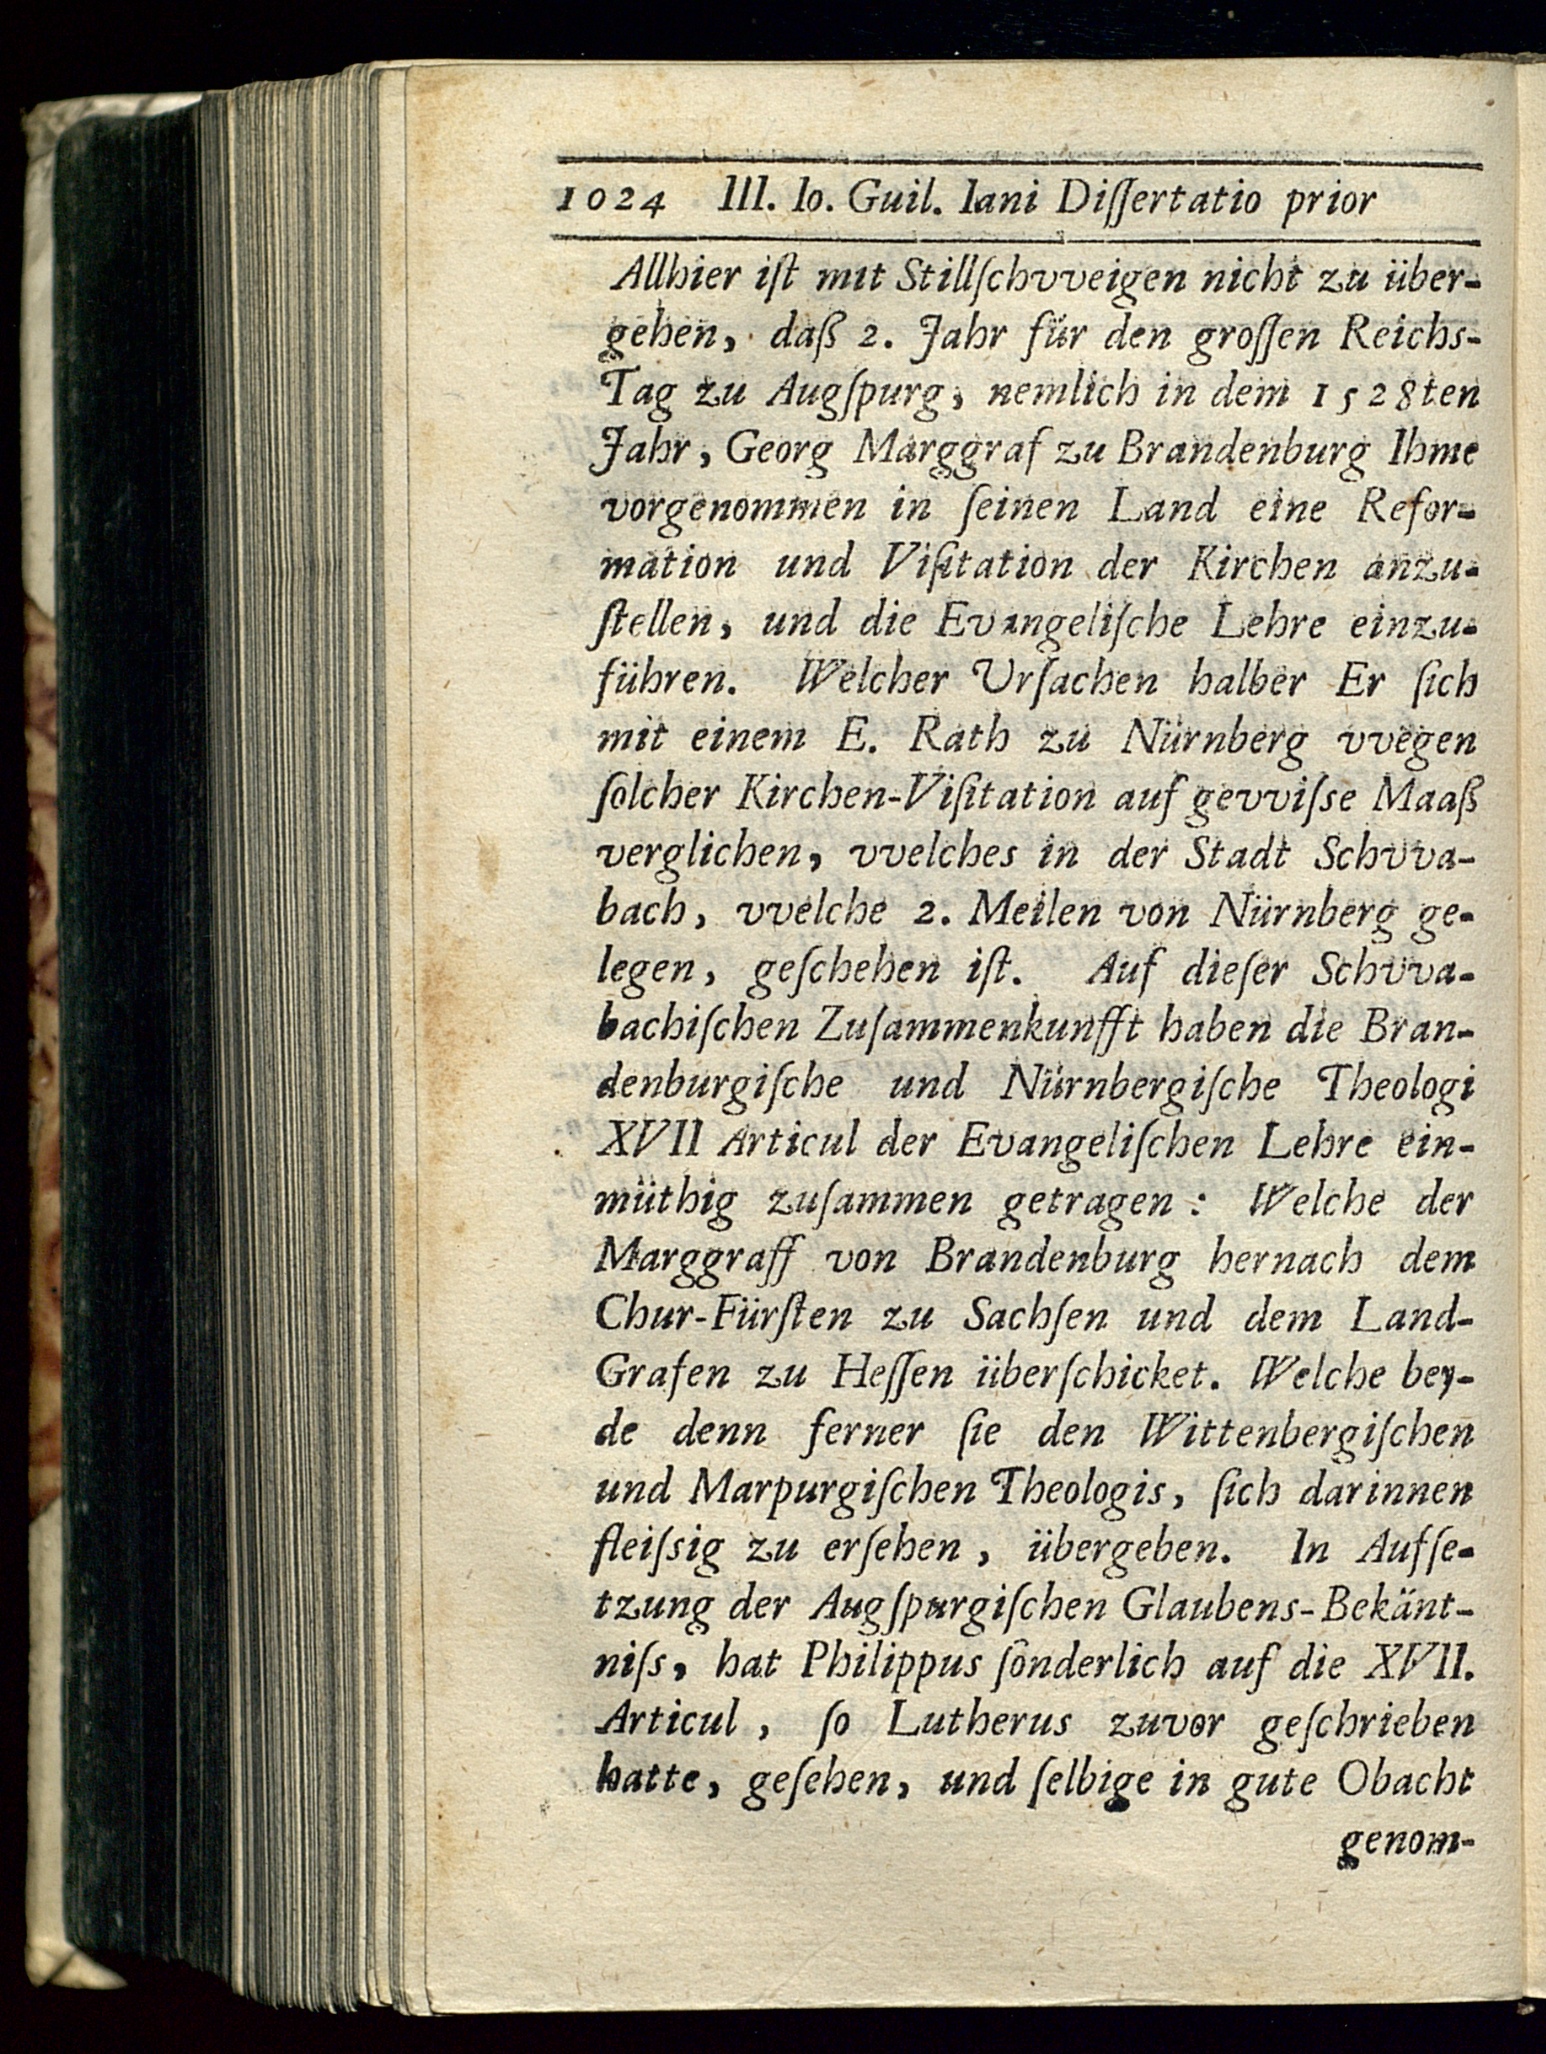 1024 III. Io. Guil. Iani Diſſertatio prior
Allhier iſt mit Stillſchvveigen nicht zu über-
gehen, daß 2. Jahr für den groſſen Reichs-
Tag zu Augſpurg, nemlich in dem 1528ten
Jahr, Georg Marggraf zu Brandenburg Ihme
vorgenommen in ſeinen Land eine Refor-
mation und Viſitation der Kirchen anzu-
ſtellen, und die Evangeliſche Lehre einzu-
führen. Welcher Urſachen halber Er ſich
mit einem E. Rath zu Nürnberg vvegen
ſolcher Kirchen-Viſitation auf gevviſse Maaß
verglichen, vvelches in der Stadt Schvva-
bach, vvelche 2. Meilen von Nürnberg ge-
legen, geſchehen iſt. Auf dieſer Schvva-
bachiſchen Zuſammenkunfft haben die Bran-
denburgiſche und Nürnbergiſche Theologi
XVII Articul der Evangeliſchen Lehre ein-
müthig zuſammen getragen: Welche der
Marggraff von Brandenburg hernach dem
Chur-Fürſten zu Sachſen und dem Land-
Grafen zu Heſſen überſchicket. Welche bey-
de denn ferner ſie den Wittenbergiſchen
und Marpurgiſchen Theologis, ſich darinnen
fleiſsig zu erſehen, übergeben. In Aufſe-
tzung der Augſpurgiſchen Glaubens-Bekänt-
niſs, hat Philippus ſonderlich auf die XVII.
Articul, ſo Lutherus zuvor geſchrieben
hatte, geſehen, und ſelbige in gute Obacht
genom-